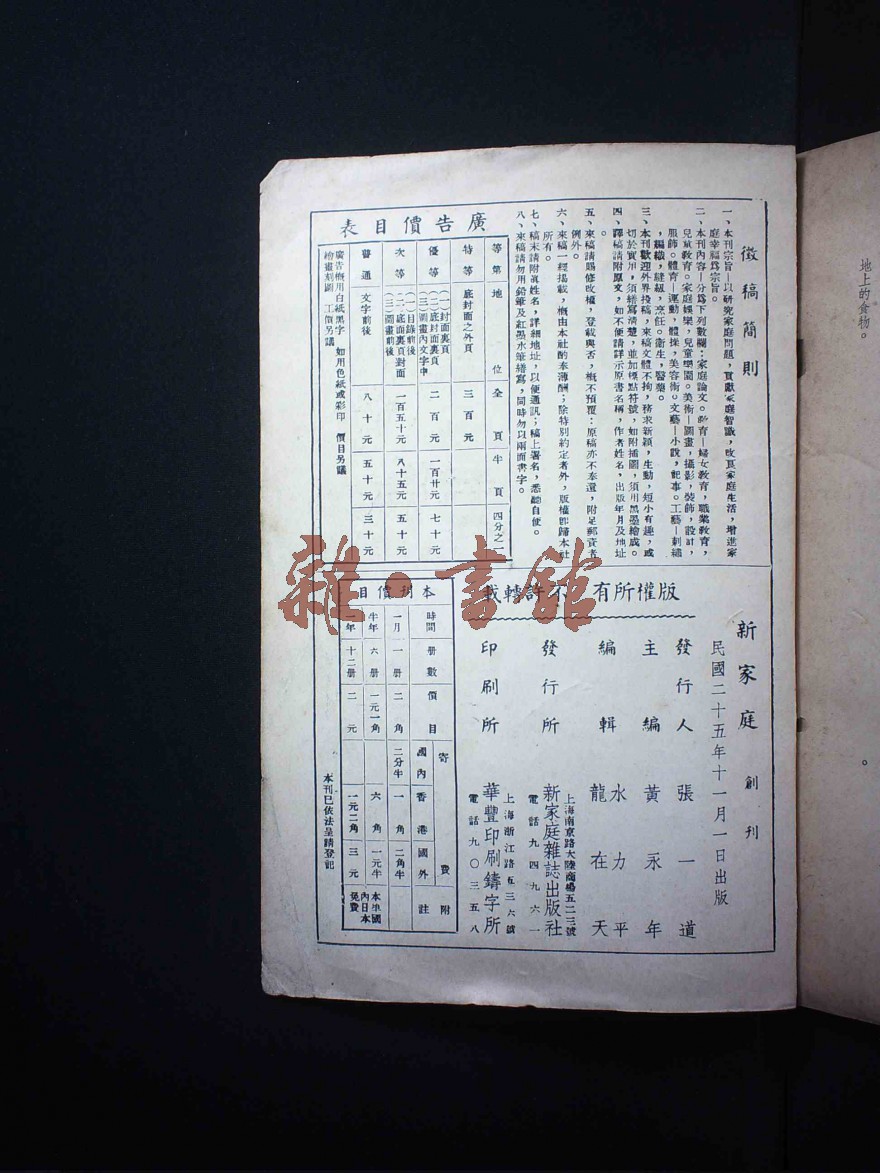 徵稿簡則
一、本刊宗旨—以研究家庭問題，貢獻家庭智識，改良家庭生活，增進家
庭幸福爲宗旨。
二、本刊內容—分爲下列數欄：家庭論文。教育—婦女教育，職業教育，
兒童教育。家庭娛樂，兒童樂園。美術—圖畫，攝影，裝飾，設計，
服飾。體育—運動，體操，美容術。文藝—小說，記事。工藝—刺繡
，編織，縫紉，烹飪。衛生，醫藥。
三、本刊歡迎外界投稿，來稿文體不拘，務求新穎，生動，短小有趣，或
切於實用，須繕寫清楚，並加標點符號，如附插圖，須用黑墨繪成。
四、譯稿請附原文，如不便請詳示原書名稱，作者姓名，出版年月及地址
。
五、來稿請賜修改權，登載與否，概不預覆：原稿亦不奉還，附足郵資者
例外。
六、來稿一經揭載，概由本社酌奉薄酬；除特別約定者外，版權即歸本社
所有。
七、稿末請附真姓名，詳細地址，以便通訊；稿上署名，悉聽自便。
八、來稿請勿用鉛筆及紅墨水筆繕寫，同時勿以兩面書字。
廣告價目表
等第 地位 全頁 半頁 四分之一
特等 底封面之外頁 三百元
優等 (一)封面裏頁 (二)底封面裏頁 (三)圖畫內文字中 二百元 一百廿元 七十元
次等 (一)目錄前後 (二)底面裏頁對面 (三)圖畫前後 一百五十元 八十五元 五十元
普通 文字前後 八十元 五十元 三十元
廣告概用白紙黑字 如用色紙或彩印 價目另議
繪畫刻圖 工價另議
新家庭 創刊
民國二十五年十一月一日出版
發行人 張一道
主編 黃永年
編輯 水力平
龍在天
發行所 上海南京路大陸商場五二三號
新家庭雜誌出版社
電話九四九六一
印刷所 上海浙江路五三六號
華豐印刷鑄字所
電話九〇三五八
版權所有 不許轉載
本刊價目
時間 册數 價目 寄費 國內 香港 國外 附註
一月 一册 二角 二分半 一角 二角半
半年 六册 一元一角 六角 一元半
一年 十二册 二元 一元二角 三元
國內日本免費
本刊已依法呈請登記
地上的食物。
。
雜·書館